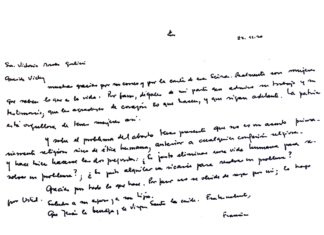 22.11.20
Sra. Victoria Morales Gorleri
Querida Vicky,
muchas gracias por su correo y por la carta de esas Señoras. Realmente son mujeres
que saben lo que es la vida. Por favor, dígales de mi parte que admiro su trabajo y su
testimonio; que les agradezco de corazón lo que hacen, y que sigan adelante. La patria
está orgullosa de tener mujeres así.
Y sobre el problema del aborto tener presente que no es un asunto primariamente
religioso sino de ética humana, anterior a cualquier confesión religiosa.
Y hace bien hacerse las dos preguntas: ¿es justo eliminar una vida humana para resolver
un problema?; ¿es justo alquilar un sicario para resolver un problema?
Gracias por todo lo que hace. Por favor no se olvide de rezar por mí; lo hago
por Usted. Saludos a su esposo y a sus hijos.
Que Jesús la bendiga y la Virgen Santa la cuide. Fraternalmente,
Francisco